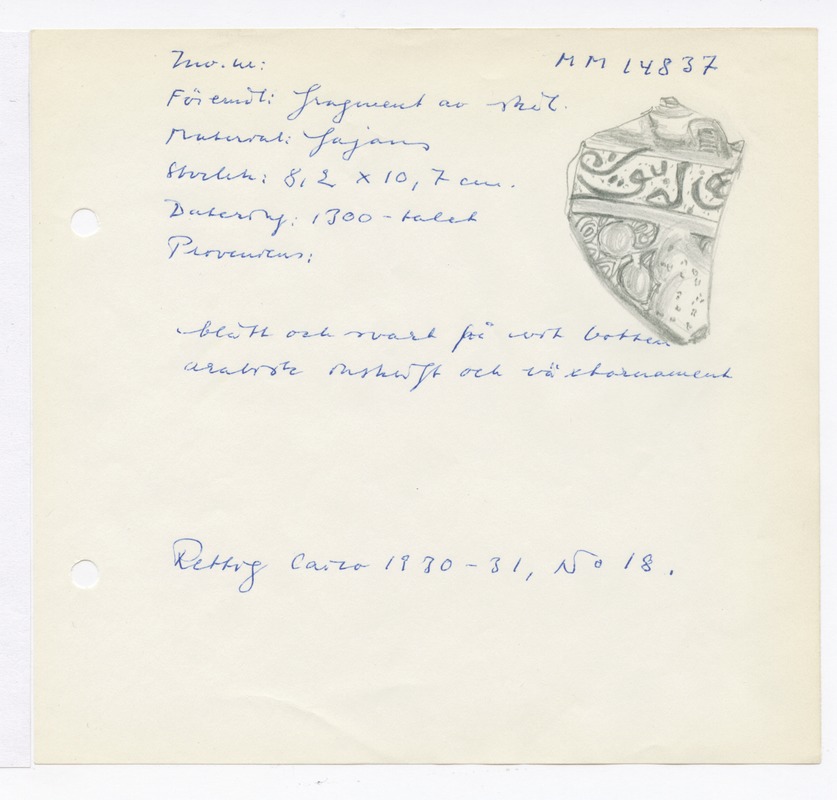 Inv.nr: MM 14837
Föremål: fragment av skål.
Material: fajans
Storlek: 8,2 x 10,7 cm.
Datering: 1300-talet
Proveniens:
blått och svart på vit botten
arabisk inskrift och växtornament
Rettig Cairo 1930-31, No 18.